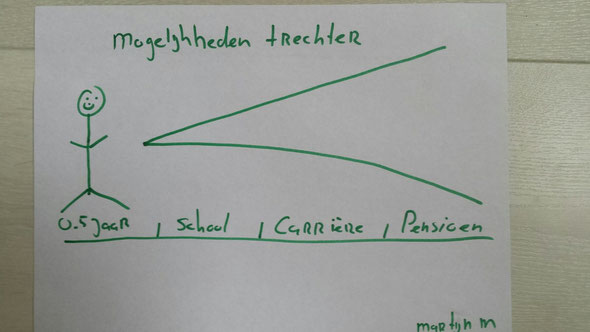 mogelijkheden trechter
0.5 jaar , School , Carrière , Pensioen
martijn m